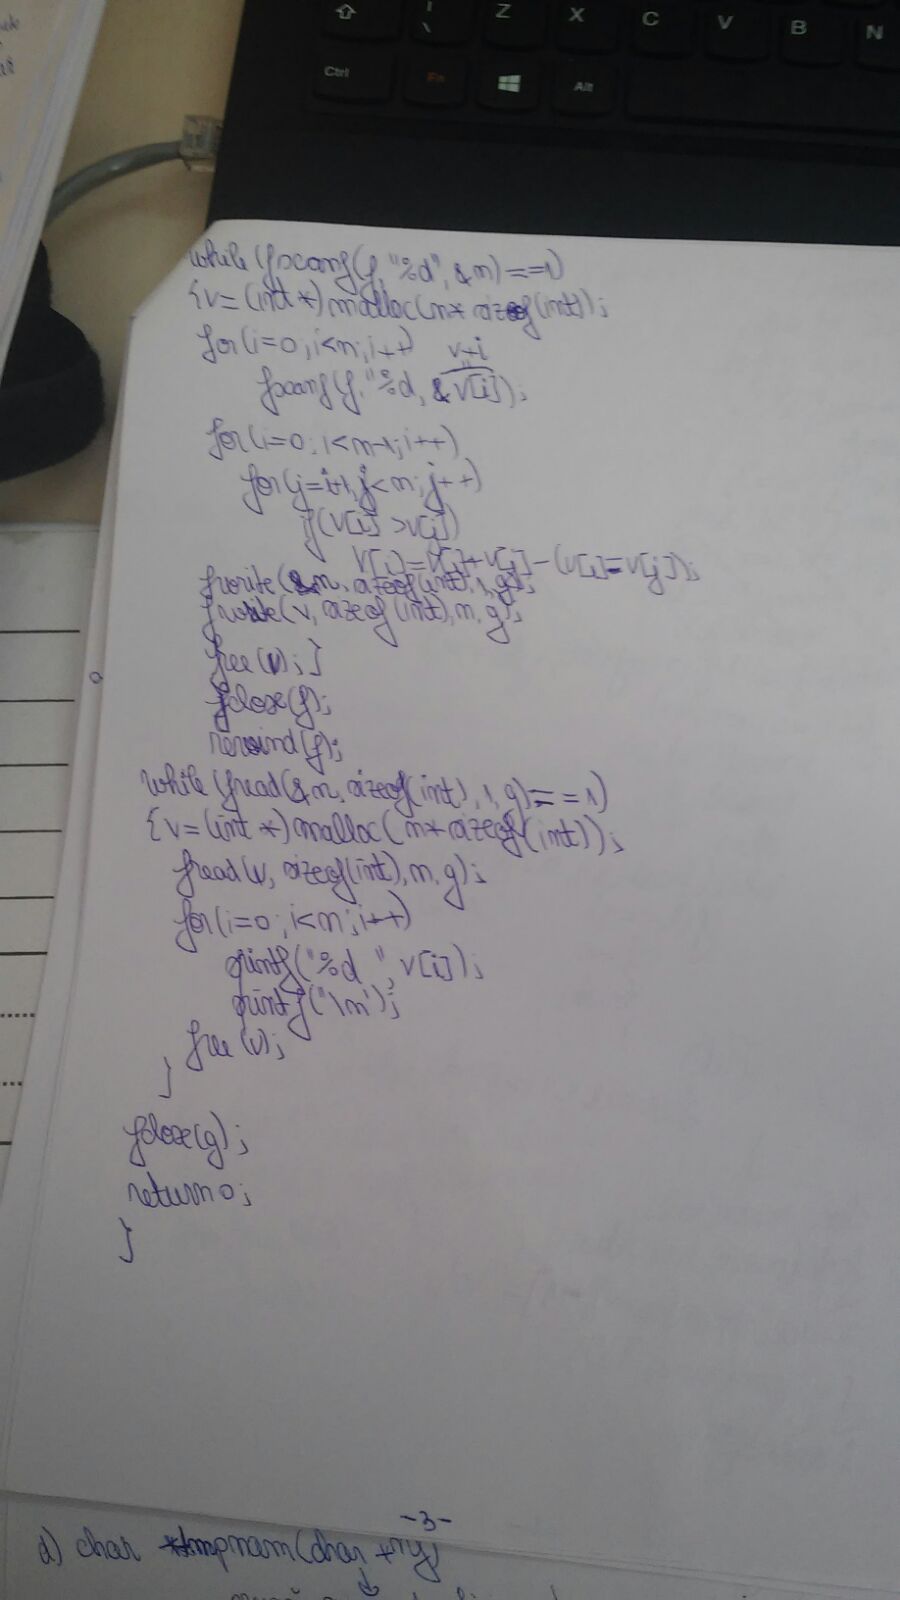 Z X C V B N
Ctrl Fn Alt
while (fscanf(f, "%d", &n)==1)
{v=(int*)malloc(n* sizeof(int));
for(i=0; i<n; i++
v+i
fscanf(f, "%d, &v[i]);
for(i=0; i<n-1; i++)
for(j=i+1; j<n; j++)
if(v[i] >v[j])
v[i]=v[i]+v[j]-(v[i]=v[j]);
fwrite(&n, sizeof(int), 1, g);
fwrite(v, sizeof(int), n, g);
free(v); }
fclose(f);
rewind(f);
while (fread(&n, sizeof(int), 1, g)===1)
{v=(int *)malloc(n*sizeof(int));
fread(v, sizeof(int), n, g);
for(i=0; i<n; i++)
printf("%d ", v[i]);
printf('\n');
free(v);
}
fclose(g);
return 0;
}
-3-
d) char *tmpnam(char *